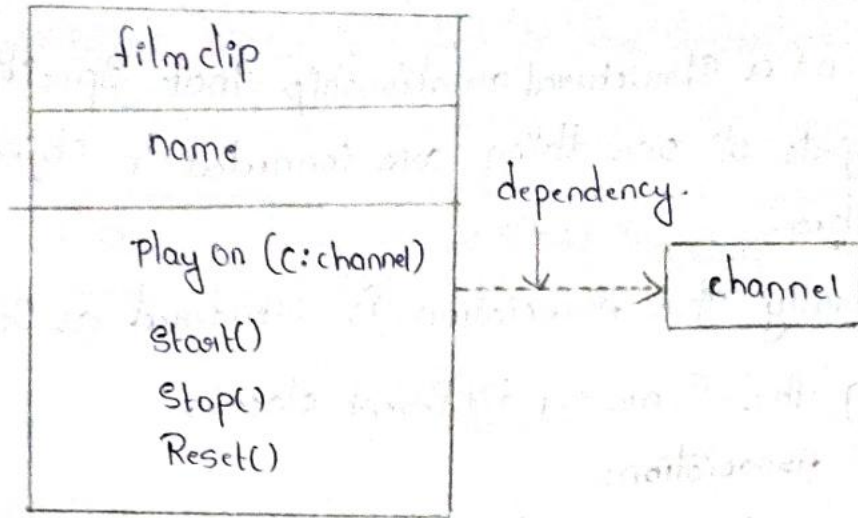 film clip
name
Play on (c:channel)
Start()
Stop()
Reset()
dependency.
channel